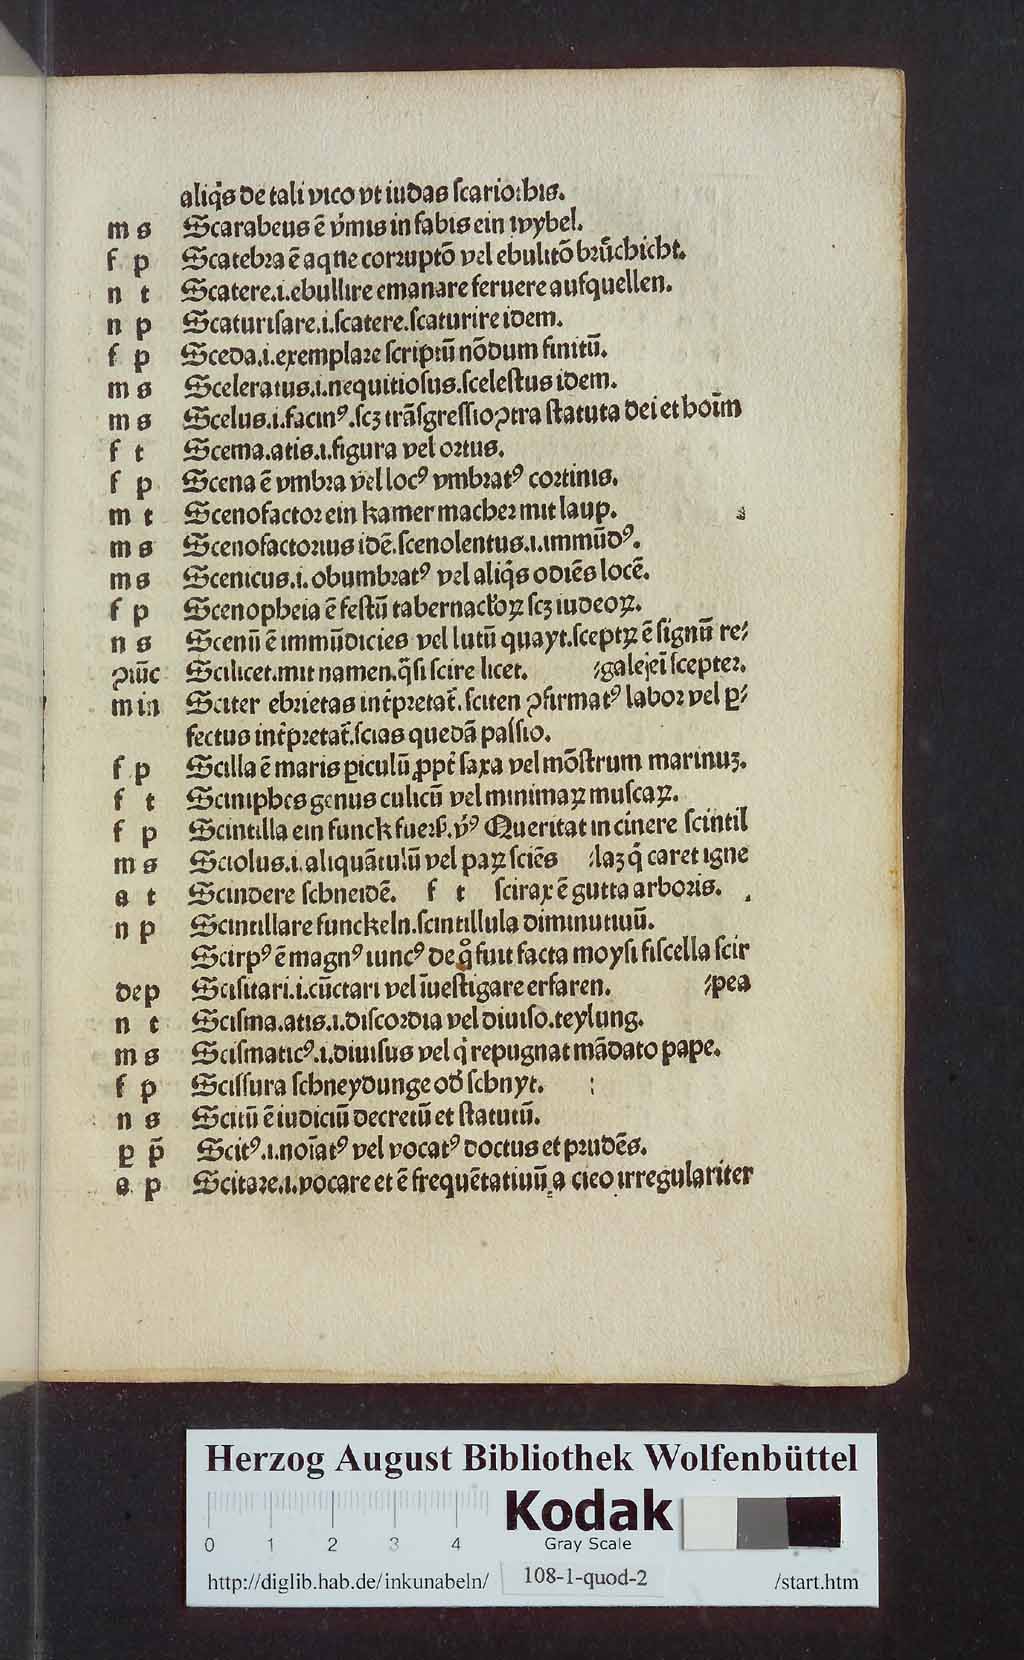 aliq̃s de tali vico vt iudas ſcariothis.
m s Scarabeus ē v̓mis in fabis ein wybel.
f p Scatebra ē aque corruptō vel ebulitō brūchicht.
n t Scatere.i.ebullire emanare feruere aufquellen.
n p Scaturiſare.i.ſcatere.ſcaturire idem.
f p Sceda.i.exemplare ſcriptū nōdum finitū.
m s Sceleratus.i.nequitioſus.ſceleſtus idem.
m s Scelus.i.facinꝰ.ſcʒ trāſgreſſio ꝯtra ſtatuta dei et hoīm
f t Scema.atis.i.figura vel ortus.
f p Scena ē vmbra vel locꝰ vmbratꝰ cortinis.
m t Scenofactor ein kamer macher mit laup.
m s Scenofactorius idē.ſcenolentus.i.immūdꝰ.
m s Scenicus.i.obumbratꝰ vel aliq̃s odiēs locē.
f p Scenopheia ē feſtū tabernacl̓oꝝ ſcʒ iudeoꝝ.
n s Scenū ē immūdicies vel lutū quayt.ſceptꝝ ē ſignū re⸗
ꝯiūc Scilicet.mit namen.q̃ſi ſcire licet. ⸗gale jeī ſcepter.
m in Sciter ebrietas int̓pretat̃.ſciten ꝯfirmatꝰ labor vel ꝑ⸗
fectus int̓pretat̃.ſcias quedā paſſio.
f p Scilla ē maris ꝑiculū ꝓpt̓ ſaxa vel mōſtrum marinuʒ.
f t Sciniphes genus culicū vel minimaꝝ muſcaꝝ.
f p Scintilla ein funck fuerß.v̓ꝰ Queritat in cinere ſcintil
m s Sciolus.i.aliquātulū vel paꝝ ſciēs ⸗laʒ q̓ caret igne
a t Scindere ſchneidē. f t ſcirax ē gutta arboris.
n p Scintillare funckeln.ſcintillula diminutiuū.
Scirpꝰ ē magnꝰ iuncꝰ de qͦ fuit facta moyſi fiſcella ſcir
dep Sciſitari.i.cūctari vel īueſtigare erfaren. ⸗pea
n t Sciſma.atis.i.diſcordia vel diuiſo.teylung.
m s Sciſmaticꝰ.i.diuiſus vel q̓ repugnat mādato pape.
f p Sciſſura ſchneydunge od̓ ſchnyt.
n s Scitū ē iudiciū decretū et ſtatutū.
ꝑ p̄ Scitꝰ.i.noīatꝰ vel vocatꝰ doctus et prudēs.
a p Scitare.i.vocare et ē frequētatiuū a cieo irregulariter
Herzog August Bibliothek Wolfenbüttel
0 1 2 3 4
Kodak
Gray Scale
http://diglib.hab.de/inkunabeln/ 108-1-quod-2 /start.htm